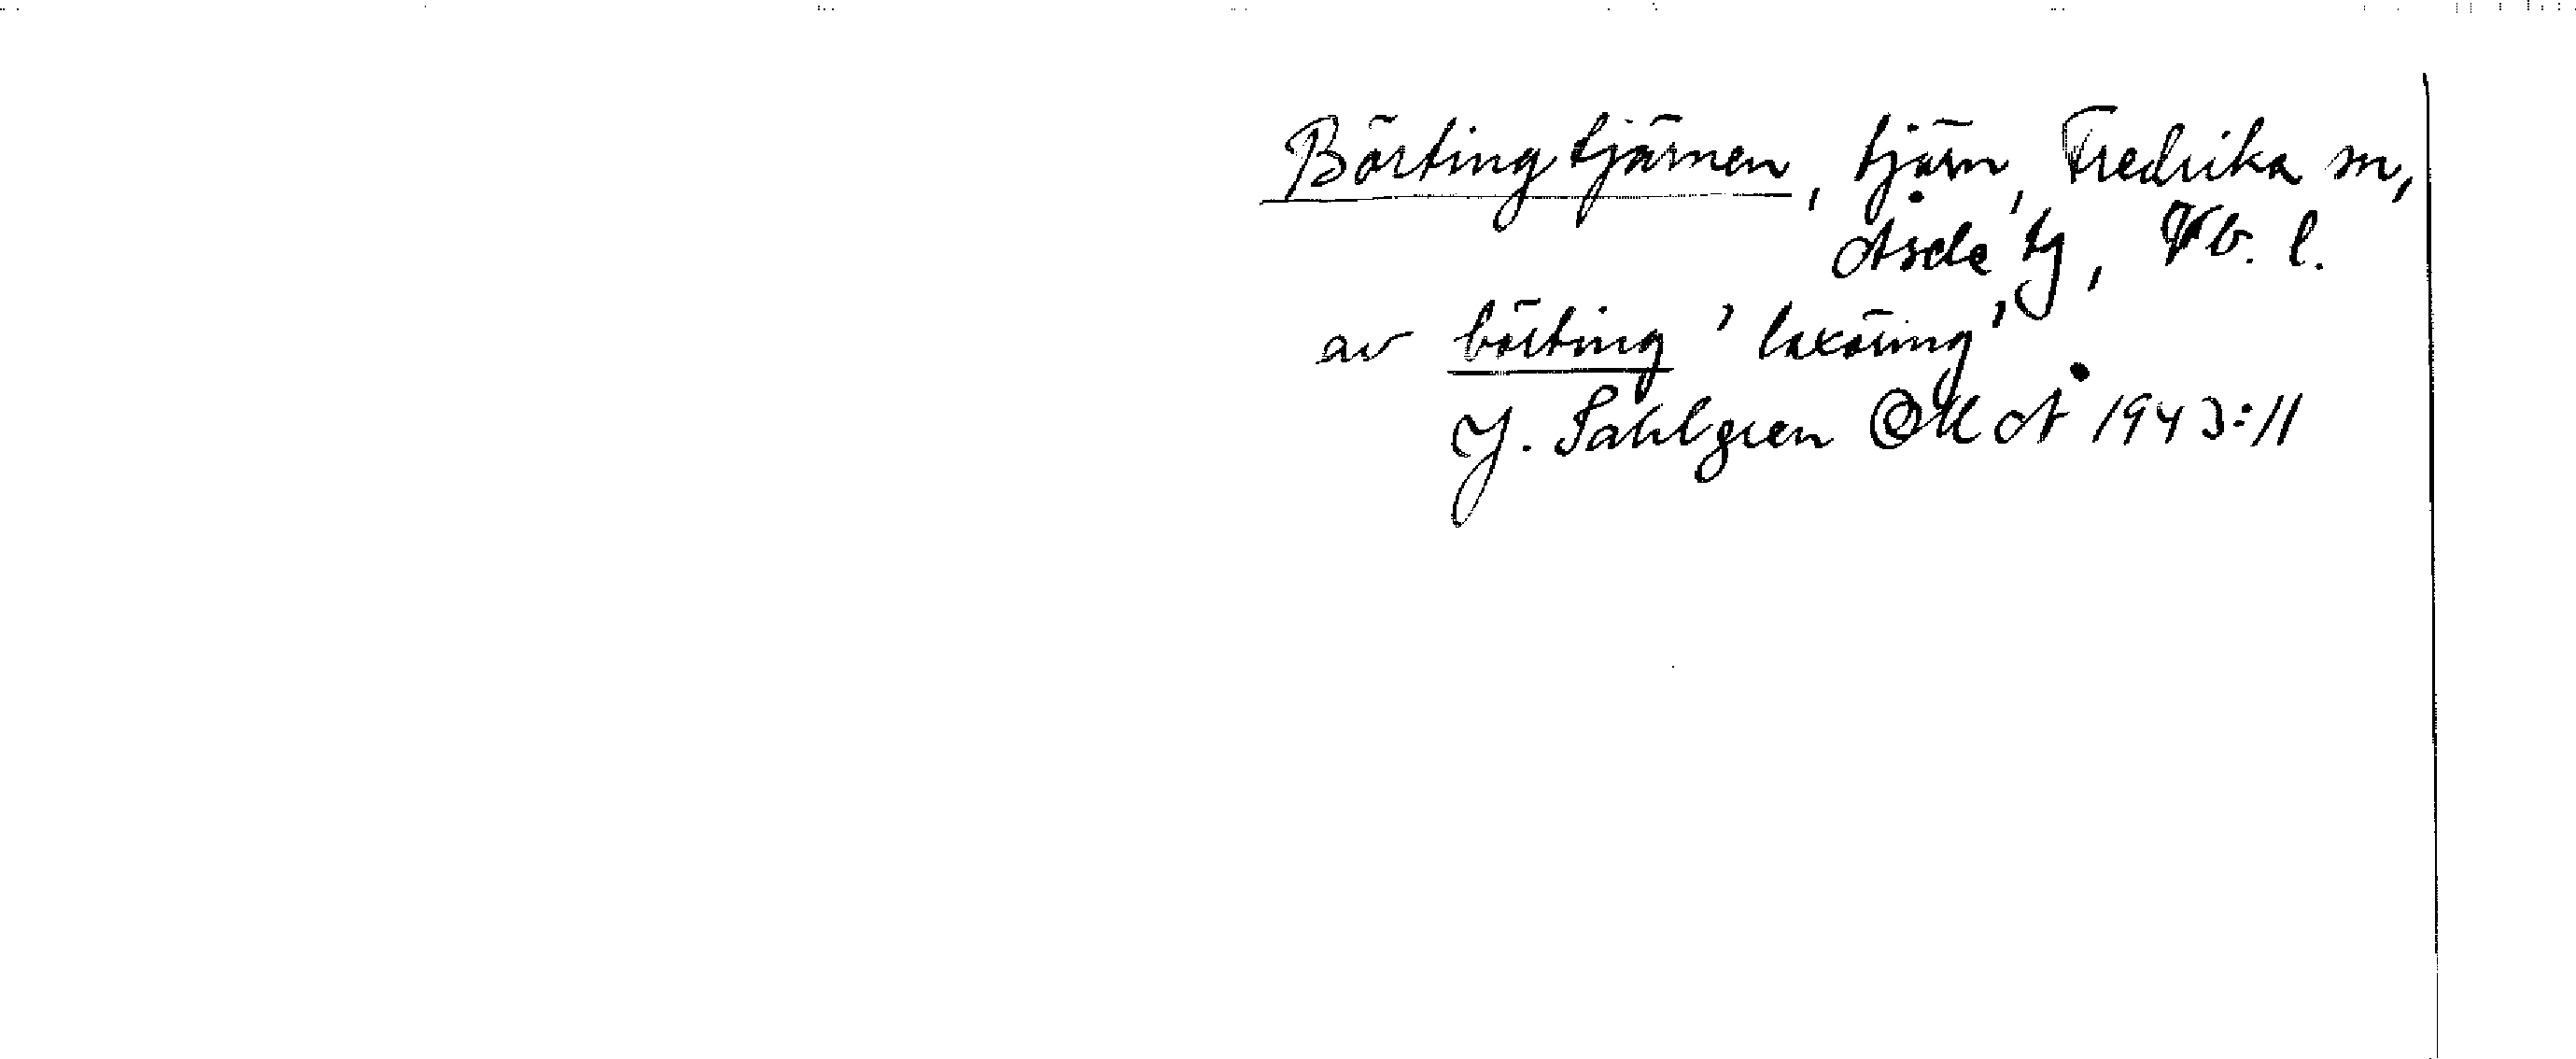 Börtingtjärnen, tjärn, Fredrika sn,
Åsele tg, Vb. l.
av börting 'laxöring'
J. Sahlgren OKÅ 1943:11